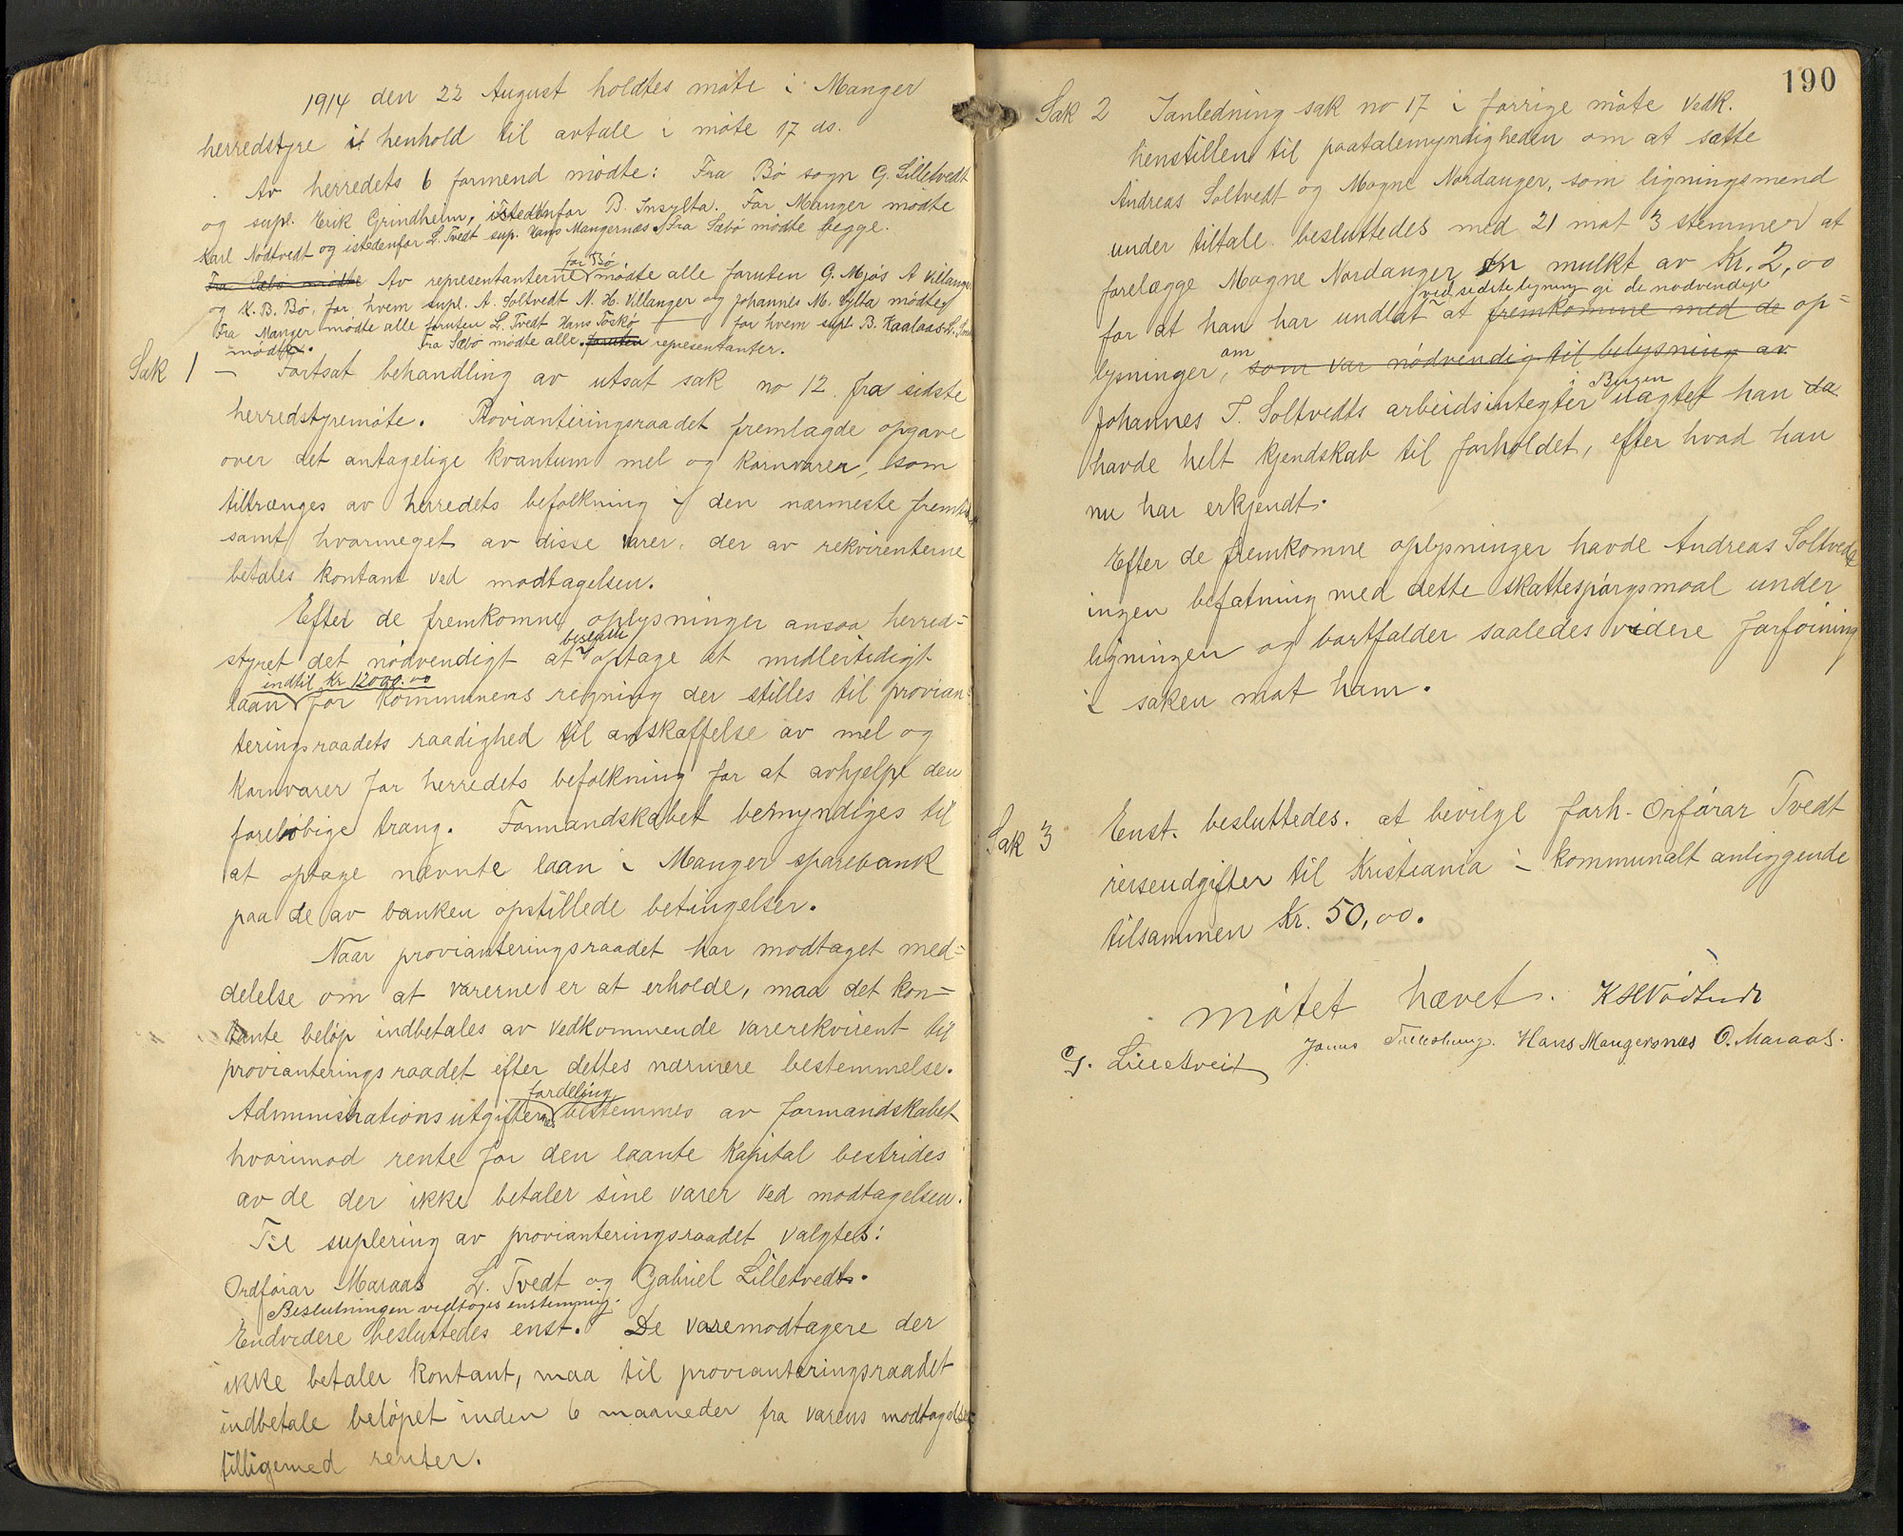 1914 den 22 August holdtes møte i Manger
herredstyre i henhold til avtale i møte 17 ds.
Av herredets 6 formend mødte: Fra Bø sogn G. Lilletvedt
og supl. Erik Grindheim, istedenfor B. Insylta. For Manger mødte
Karl Nødtvedt og istedenfor L. Tvedt sup. Hans Mangernæs. Fra Sæbø mødte begge.
for Bø
Fra Sæbø mødte Av representanterne mødte alle foruten G. Mjøs A Villanger
og K. B. Bø, for hvem supl. A. Soltvedt N. H. Villanger og Johannes M. Sylta mødte
Fra Manger mødte alle foruten L. Tvedt Hans Toskø for hvem supl B. Kaalaas
mødte. Fra Sæbø mødte alle foruten representanter.
Sak 1 – Fortsat behandling av utsat sak no 12 fra sidste
herredstyremøte. Provianteringsraadet fremlagde opgave
over det antagelige kvantum mel og kornvarer, som
tiltrænges av herredets befolkning i den nærmeste fremtid
samt hvormeget av disse varer, der av rekvirenterne
betales kontant ved modtagelsen.
Efter de fremkomne oplysninger ansaa herred=
beslutte
styret det nødvendigt at optage et midlertidigt
indtil Kr 12000.00
laan for kommunens regning der stilles til provian=
teringsraadets raadighed til anskaffelse av mel og
kornvarer for herredets befolkning for at avhjelpe den
foreløbige trang. Formandskabet bemyndiges til
at optage nævnte laan i Manger sparebank
paa de av banken opstillede betingelser.
Naar provianteringsraadet har modtaget med=
delelse om at varerne er at erholde, maa det kon=
tante beløp indbetales av vedkommende varerekvirent til
provianteringsraadet efter dettes nærmere bestemmelse.
fordeling
Administrationsutgifternes bestemmes av formandskabet
hvorimod rente for den laante kapital bestrides
av de der ikke betaler sine varer ved modtagelsen.
Til suplering av provianteringsraadet valgtes:
Ordførar Maraas L. Tvedt og Gabriel Lilletvedt.
Beslutningen vedtoges enstemmig.
Endvidere besluttedes enst. De varemodtagere der
ikke betaler kontant, maa til provianteringsraadet
indbetale beløpet inden 6 maaneder fra varens modtagelse
tilligemed renter.
190
Sak 2 Ianledning sak no 17 i forrige møte vedk.
henstillen til paatalemyndigheden om at sætte
Andreas Soltvedt og Mogne Nordanger, som ligningsmend
under tiltale besluttedes med 21 mot 3 stemmer at
forelægge Mogne Nordanger en mulkt av Kr. 2,00
ved sidste ligning gi de nødvendige
for at han har undlat at fremkomme med de op=
lysninger, om som var nødvendig til belysning av
i Bergen
Johannes T. Soltvedts arbeidsintegter uagtet han da
havde helt kjendskab til forholdet, efter hvad han
nu har erkjendt.
Efter de fremkomne oplysninger havde Andreas Soltvedt
ingen befatning med dette skattespørgsmaal under
ligningen og bortfalder saaledes videre forføining
i saken mot ham.
Sak 3 Enst. besluttedes. at bevilge forh. Orførar Tvedt
reiseudgifter til Kristiania i kommunalt anliggende
tilsammen Kr. 50,00.
møtet hævet. K H Nødtvedt
G. Lilletveit Jonas Hans Mangersnes O. Maraas.